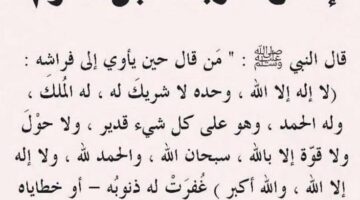 قال النبي ﷺ : " مَن قال حين يأوي إلى فراشه :
(لا إله إلا الله ، وحده لا شريكَ له ، له المُلكَ ،
وله الحمد ، وهو على كل شيء قدير ، ولا حوْلَ
ولا قوّة إلا بالله ، سبحان الله ، والحمد لله ، ولا إله
إلا الله ، والله أكبر ) غُفرَتْ له ذنوبُه – أو خطاياه